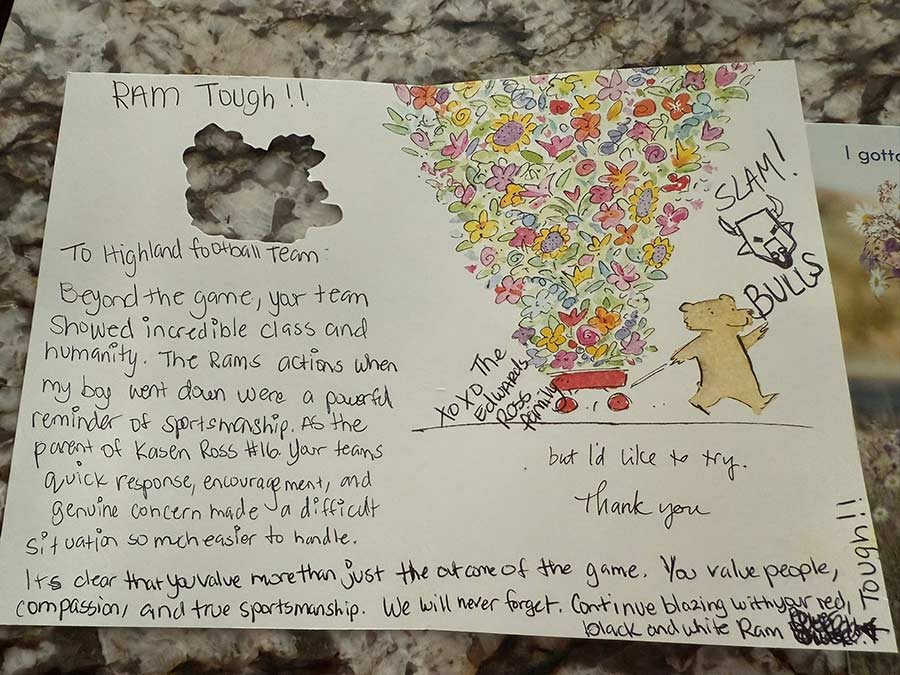 RAM TOUGH!!
To Highland football Team
Beyond the game, your team
Showed incredible class and
humanity. The Rams actions when
my boy went down were a powerful
reminder of sportsmanship. As the
parent of Kasen Ross #16. Your teams
quick response, encouragement, and
genuine concern made a difficult
situation so much easier to handle.
Its clear that you value more than just the outcome of the game. You value people,
compassion, and true sportsmanship. We will never forget. Continue blazing with your red,
black and white Ram
TOUGH!!
SLAM!
BULLS
XOXO The
Edwards
Ross
family
but I'd like to try.
Thank you
I gotta